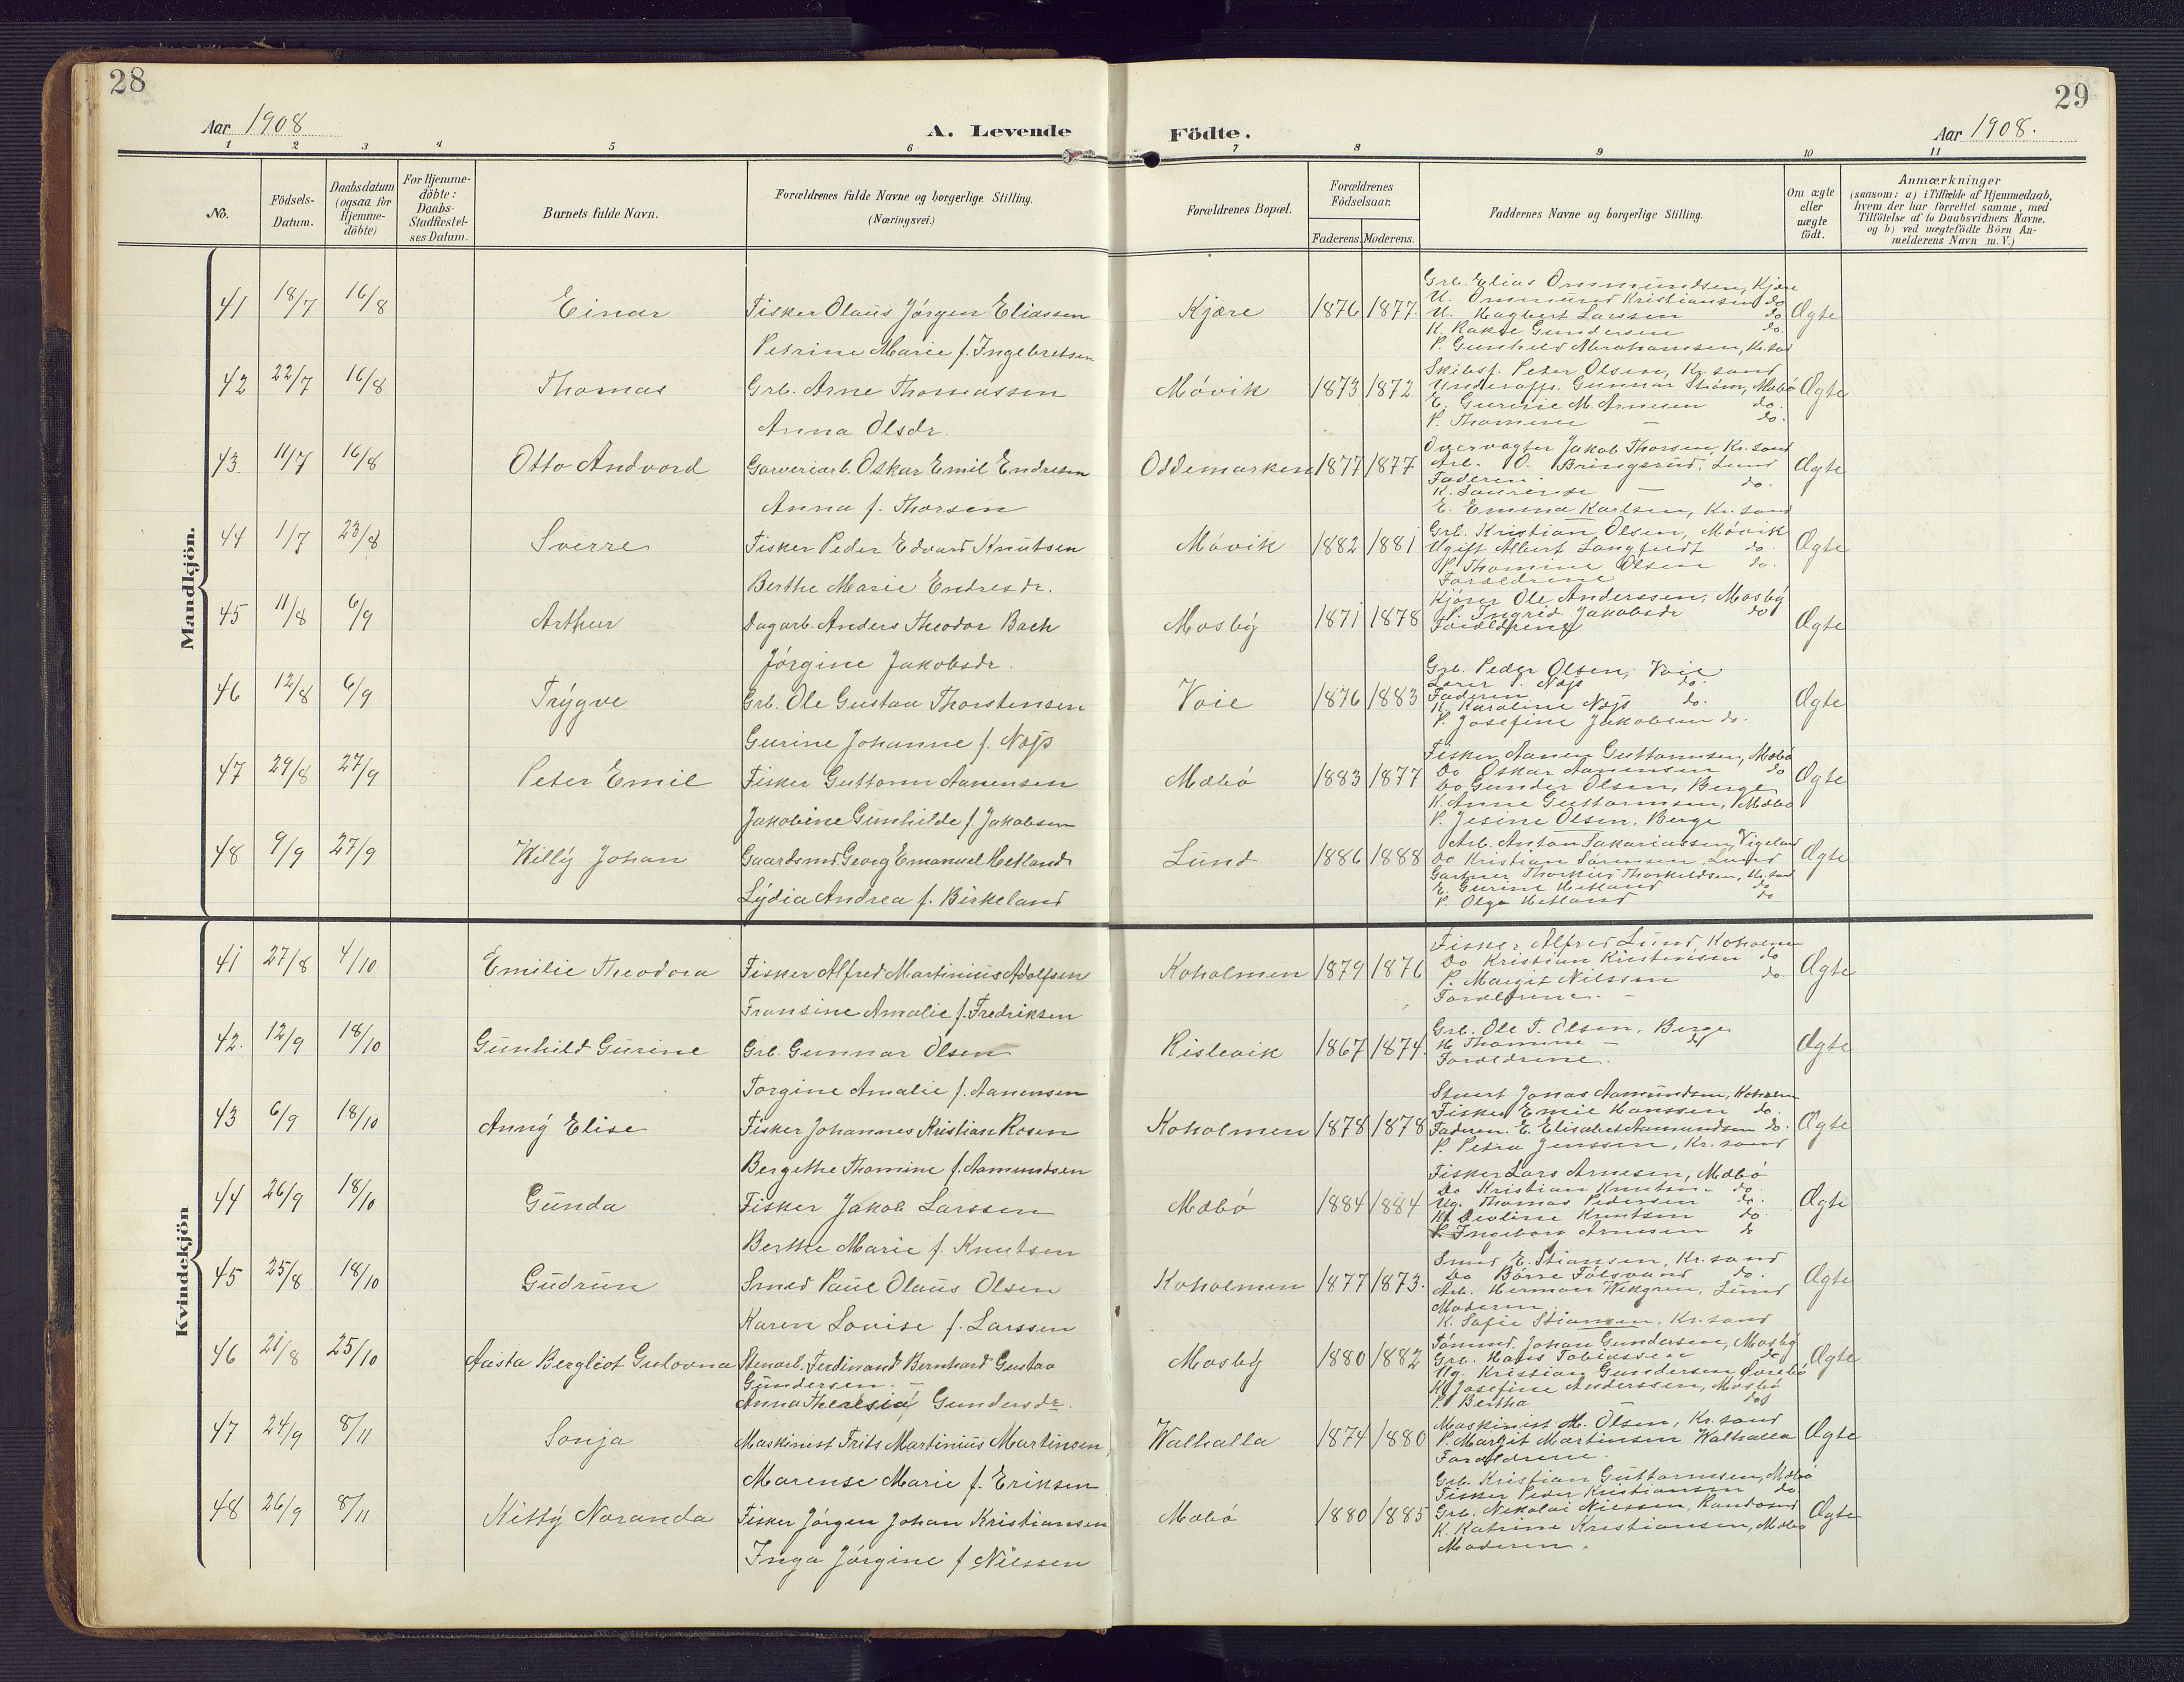 28
29
Aar 1908
A. Levende
Födte.
Aar 1908.
1 2 3 4 5 6 7 8 9 10 11
No.
Födsels-Datum.
Daabsdatum (ogsaa for Hjemme-döbte)
For Hjemme-döbte: Daabs-Stadfæstel-ses Datum.
Barnets fulde Navn.
Forældrenes fulde Navne og borgerlige Stilling.
(Næringsvei.)
Forældrenes Bopæl.
Forældrenes Födselsaar.
Faderens. Moderens.
Faddernes Navne og borgerlige Stilling.
Om ægte eller uægte födt.
Anmærkninger
(saasom: a) i Tilfælde af Hjemmedaab,
hvem der har forrettet samme, med
Tilföielse af to Daabsvidners Navne,
og b) ved uægtefödte Börn An-
melderens Navn m. V.)
Mandkjön.
41 18/7 16/8 Einar Fisker Olaus Jörgen Eliassen Kjære 1876 1877 Ægte
Petrine Marie f. Ingebretsen
Grb. Elias Ommundsen, Kjære
U. Ommund Kristiansen do
U. Hagbert Larssen do
K. Rakel Gundersen do.
P. Gunhild Abrahamsen, Kr.sand
42 22/7 16/8 Thomas Grb. Arne Thomassen Mövik 1873 1872 Ægte
Anna Olsdr.
Skibsf. Peter Olsen, Kr. sand
Underoffs. Gunnar Ström, Mæbö
E. Gurine M. Arnesen do.
P. Thomine — do.
43. 11/7 16/8 Otto Andvord Garveriarb. Oskar Emil Endresen Oddemarken 1877 1877 Ægte
Anna f. Thorsen
Overvagter Jakob Thorsen, Kr. sand
Arb. O. Bringsrud, Lund
Faderen.
K. Laurense — do.
E. Emma Karlsen, Kr. sand
44 1/7 23/8 Sverre Fisker Peder Edvard Knutsen Mövik 1882 1881 Ægte
Berthe Marie Endresdr.
Grb. Kristian Olsen, Mövik
Ugift Albert Langfeldt do.
P. Thomine Olsen do.
Forældrene
45 11/8 6/9 Arthur Dagarb. Anders Theodor Bach Mosbÿ 1871 1878 Ægte
Jörgine Jakobsdr.
Kjörer Ole Anderssen, Mosbÿ
P. Ingrid Jakobsdr do
Forældrene
46 12/8 6/9 Trÿgve Grb. Ole Gustav Thorstensen Voie 1876 1883 Ægte
Gurine Johanne f. Næss
Grb. Peder Olsen, Voie
Lærer S. Næss do.
Faderen
K. Karoline Næss do.
P. Josefine Jakobsen do.
47 29/8 27/9 Peter Emil Fisker Guttorm Aanensen Mæbö 1883 1877 Ægte
Jakobine Gunhilde f. Jakobsen
Fisker Aanen Guttormsen, Mæbö
Do Oskar Aanensen do
Do Gunder Olsen, Berge
K. Anne Guttormsen, Mæbö
P. Jesine Olsen. Berge
48 9/9 27/9 Willÿ Johan Gaardsmd. Georg Emanuel Hetland Lund 1886 1888 Ægte
Lÿdia Andrea f. Birkeland
Arb. Anton Sakariassen, Vigeland
Do Kristian Sörensen, Lund
Gartner Thorkild Thorkildsen, Kr. sand
E. Gurine Hetland do
P. Olga Hetland do
Kvindekjön
41 27/8 4/10 Emilie Theodora Fisker Alfred Martinius Adolfsen Koholmen 1879 1876 Ægte
Fransine Amalie f. Fredriksen
Fisker Alfred Lund, Koholmen
Do Kristian Kristensen do
P. Margit Nilssen do
Forældrene. —
42. 12/9 18/10 Gunhild Gurine Grb. Gunnar Olsen Kislevik 1867 1874 Ægte
Torgine Amalie f. Aanensen
Grb. Ole T. Olsen, Berge
K. Thomine — do
Forældrene.
43 6/9 18/10 Annÿ Elise Fisker Johannes Kristian Rosen Koholmen 1878 1878 Ægte
Bergethe Thomine f. Aamundsen
Stuert Jonas Aamundsen, Koholmen
Fisker Emil Hanssen do.
Faderen. E. Elisabet Aamundsen do.
P. Petra Jenssen, Kr. sand
44 26/9 18/10 Gunda Fisker Jakob Larssen Mæbö 1884 1884 Ægte
Berthe Marie f. Knutsen
Fisker Lars Arnesen, Mæbö
Do Kristian Knutsen do.
Ug. Thomas Pedersen do.
K. Devline Knutsen do.
P. Ingeborg Arnesen do
45 25/8 18/10 Gudrun Smed Paul Olaus Olsen Koholmen 1877 1873. Ægte
Karen Lovise f. Larssen
Smed E. Stiansen, Kr. sand
Do Börre Fölsvand do.
Arb. Herman Wikgren, Lund
Moderen.
K. Sofie Stiansen, Kr. sand
46 21/8 25/10 Aasta Bergliot Gustovna Stenarb. Ferdinand Bernhard Gustav Mosbÿ 1880 1882 Ægte
Gundersen. —
Anna Theresia Gundersdr.
Tömmd. Johan Gundersen, Mosbÿ
Grb. Hans Tobiassen do
Ug. Kristian Gundersen Övrebö
K. Josefine Anderssen, Mosbÿ
P. Bertha — do
47 24/9 8/11 Sonja Maskinist Frits Martinius Martinsen, Walhalla 1874 1880 Ægte
Marense Marie f. Eriksen
Maskinist M. Olsen, Kr. sand
P. Margit Martinsen Walhalla
Forældrene.
48 26/9 8/11 Kittÿ Noranda Fisker Jörgen Johan Kristiansen Mæbö 1880 1885 Ægte
Inga Jörgine f Nilssen
Grb. Kristian Guttormsen, Mæbö
Fisker Peder Kristiansen do
Grb. Nikolai Nilssen, Randösund
K. Katrine Kristiansen, Mæbö
Moderen.